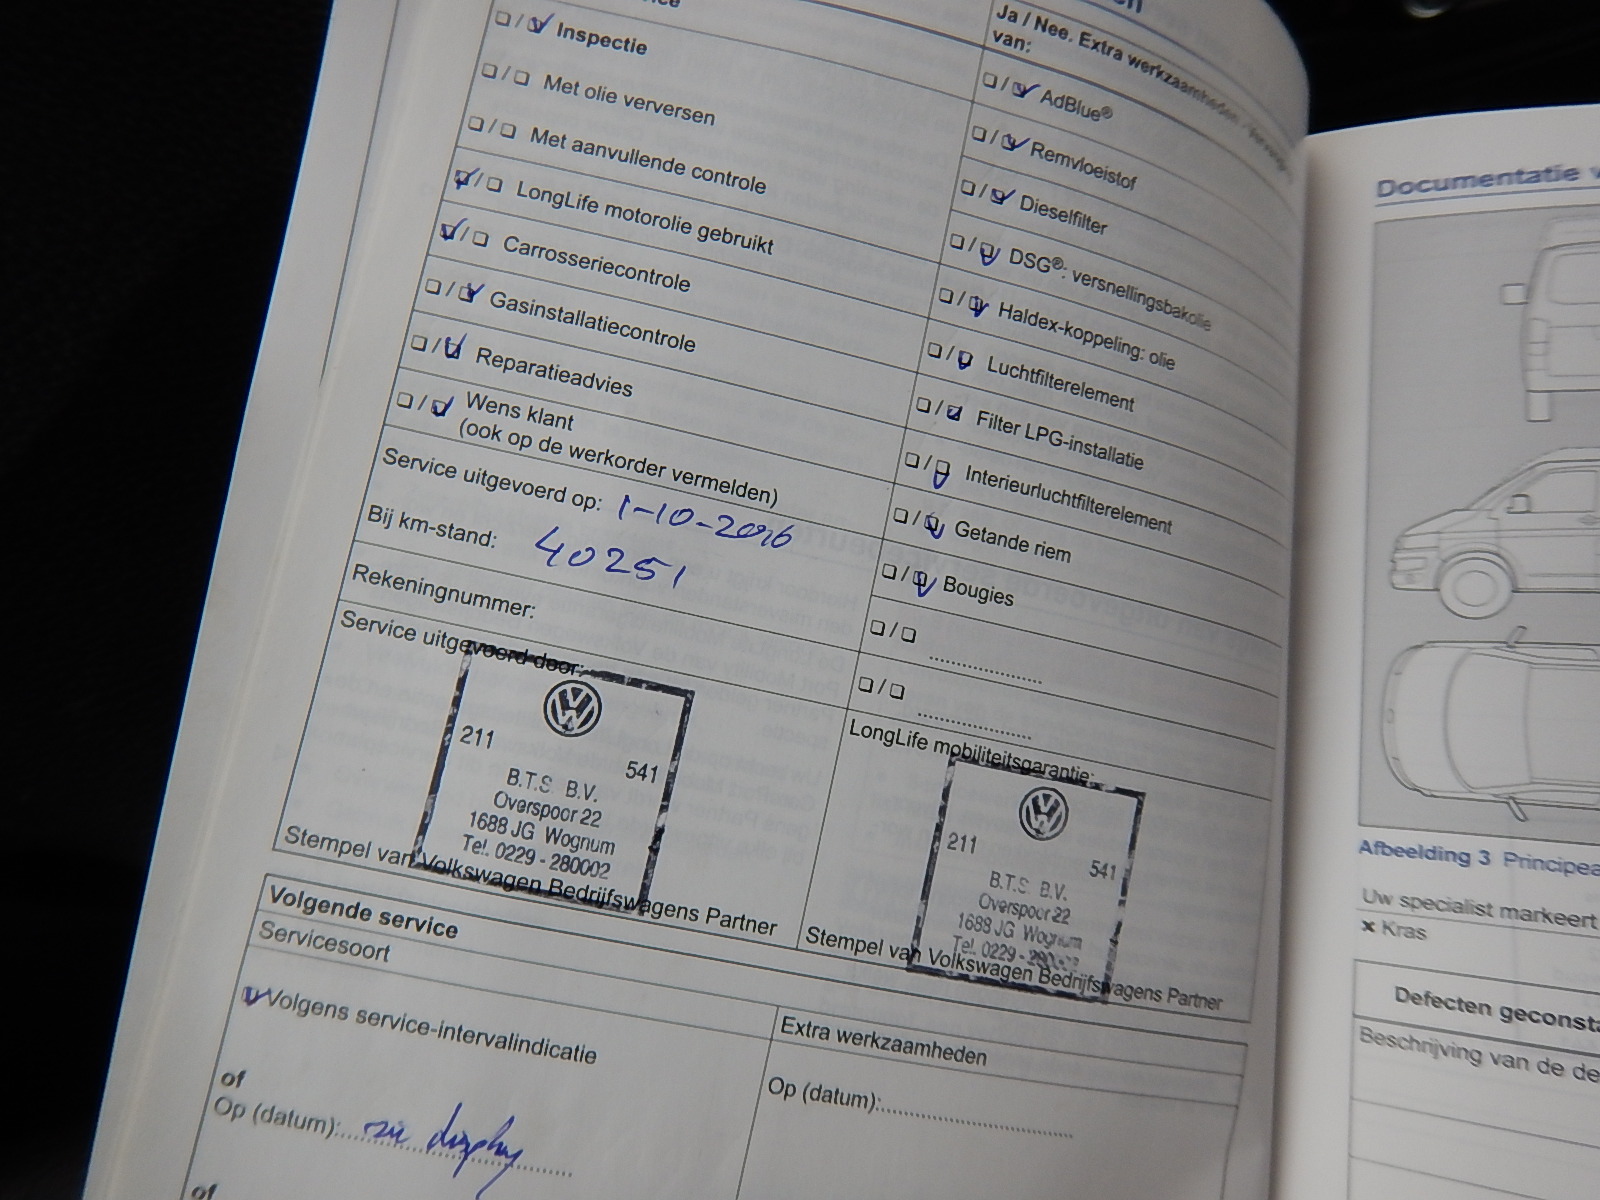 Ja / Nee. Extra werkzaamheden
van:
Inspectie
Met olie verversen
Met aanvullende controle
LongLife motorolie gebruikt
Carrosseriecontrole
Gasinstallatiecontrole
Reparatieadvies
Wens klant
(ook op de werkorder vermelden)
Service uitgevoerd op: 1-10-2016
Bij km-stand: 40251
Rekeningnummer:
Service uitgevoerd door:
211
541
B.T.S. B.V.
Overspoor 22
1688 JG Wognum
Tel. 0229 - 280002
Stempel van Volkswagen Bedrijfswagens Partner
AdBlue®
Remvloeistof
Dieselfilter
DSG®: versnellingsbakolie
Haldex-koppeling: olie
Luchtfilterelement
Filter LPG-installatie
Interieurluchtfilterelement
Getande riem
Bougies
LongLife mobiliteitsgarantie:
211
541
B.T.S. B.V.
Overspoor 22
1688 JG Wognum
Tel. 0229 -
Stempel van Volkswagen Bedrijfswagens Partner
Volgende service
Servicesoort
Volgens service-intervalindicatie
of
Op (datum): zie display
of
Extra werkzaamheden
Op (datum):
Documentatie
Afbeelding 3
Uw specialist markeert
× Kras
Defecten
Beschrijving van de